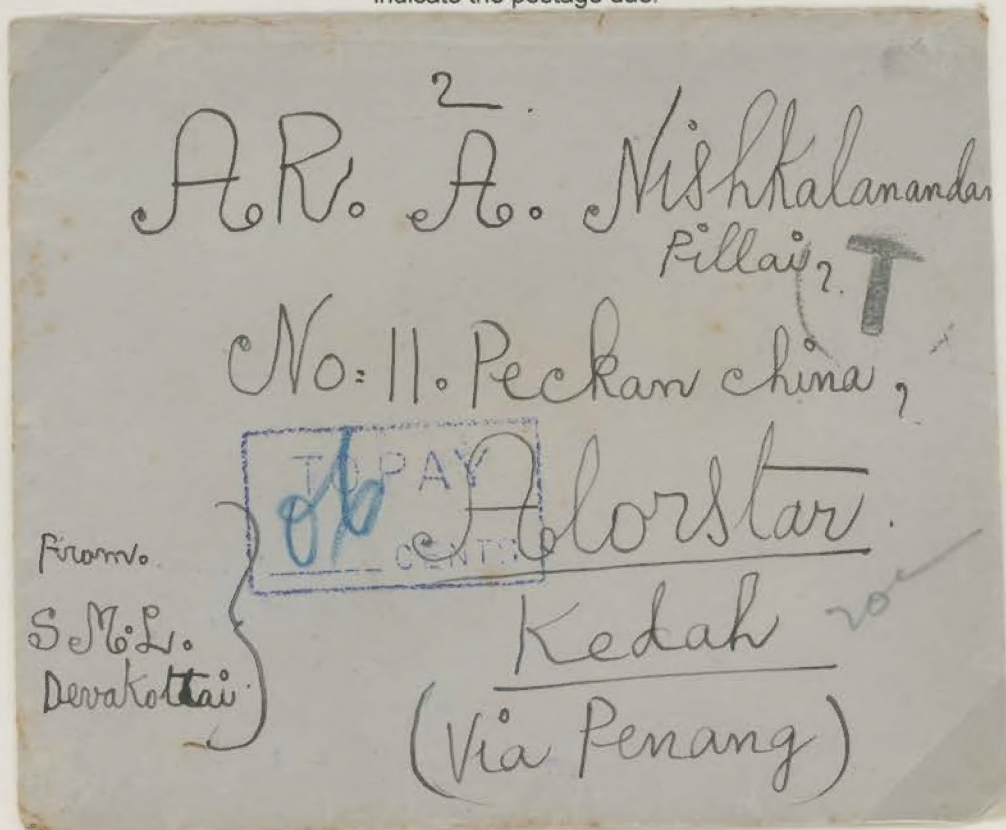 indicate the postage due.
2
AR. A. Nishkalanandan
Pillai,
T
No: 11. Peckan china,
TO PAY
06
CENTS
Alorstar.
Kedah
20c
(Via Penang)
From.
S.M.L.
Devakottai